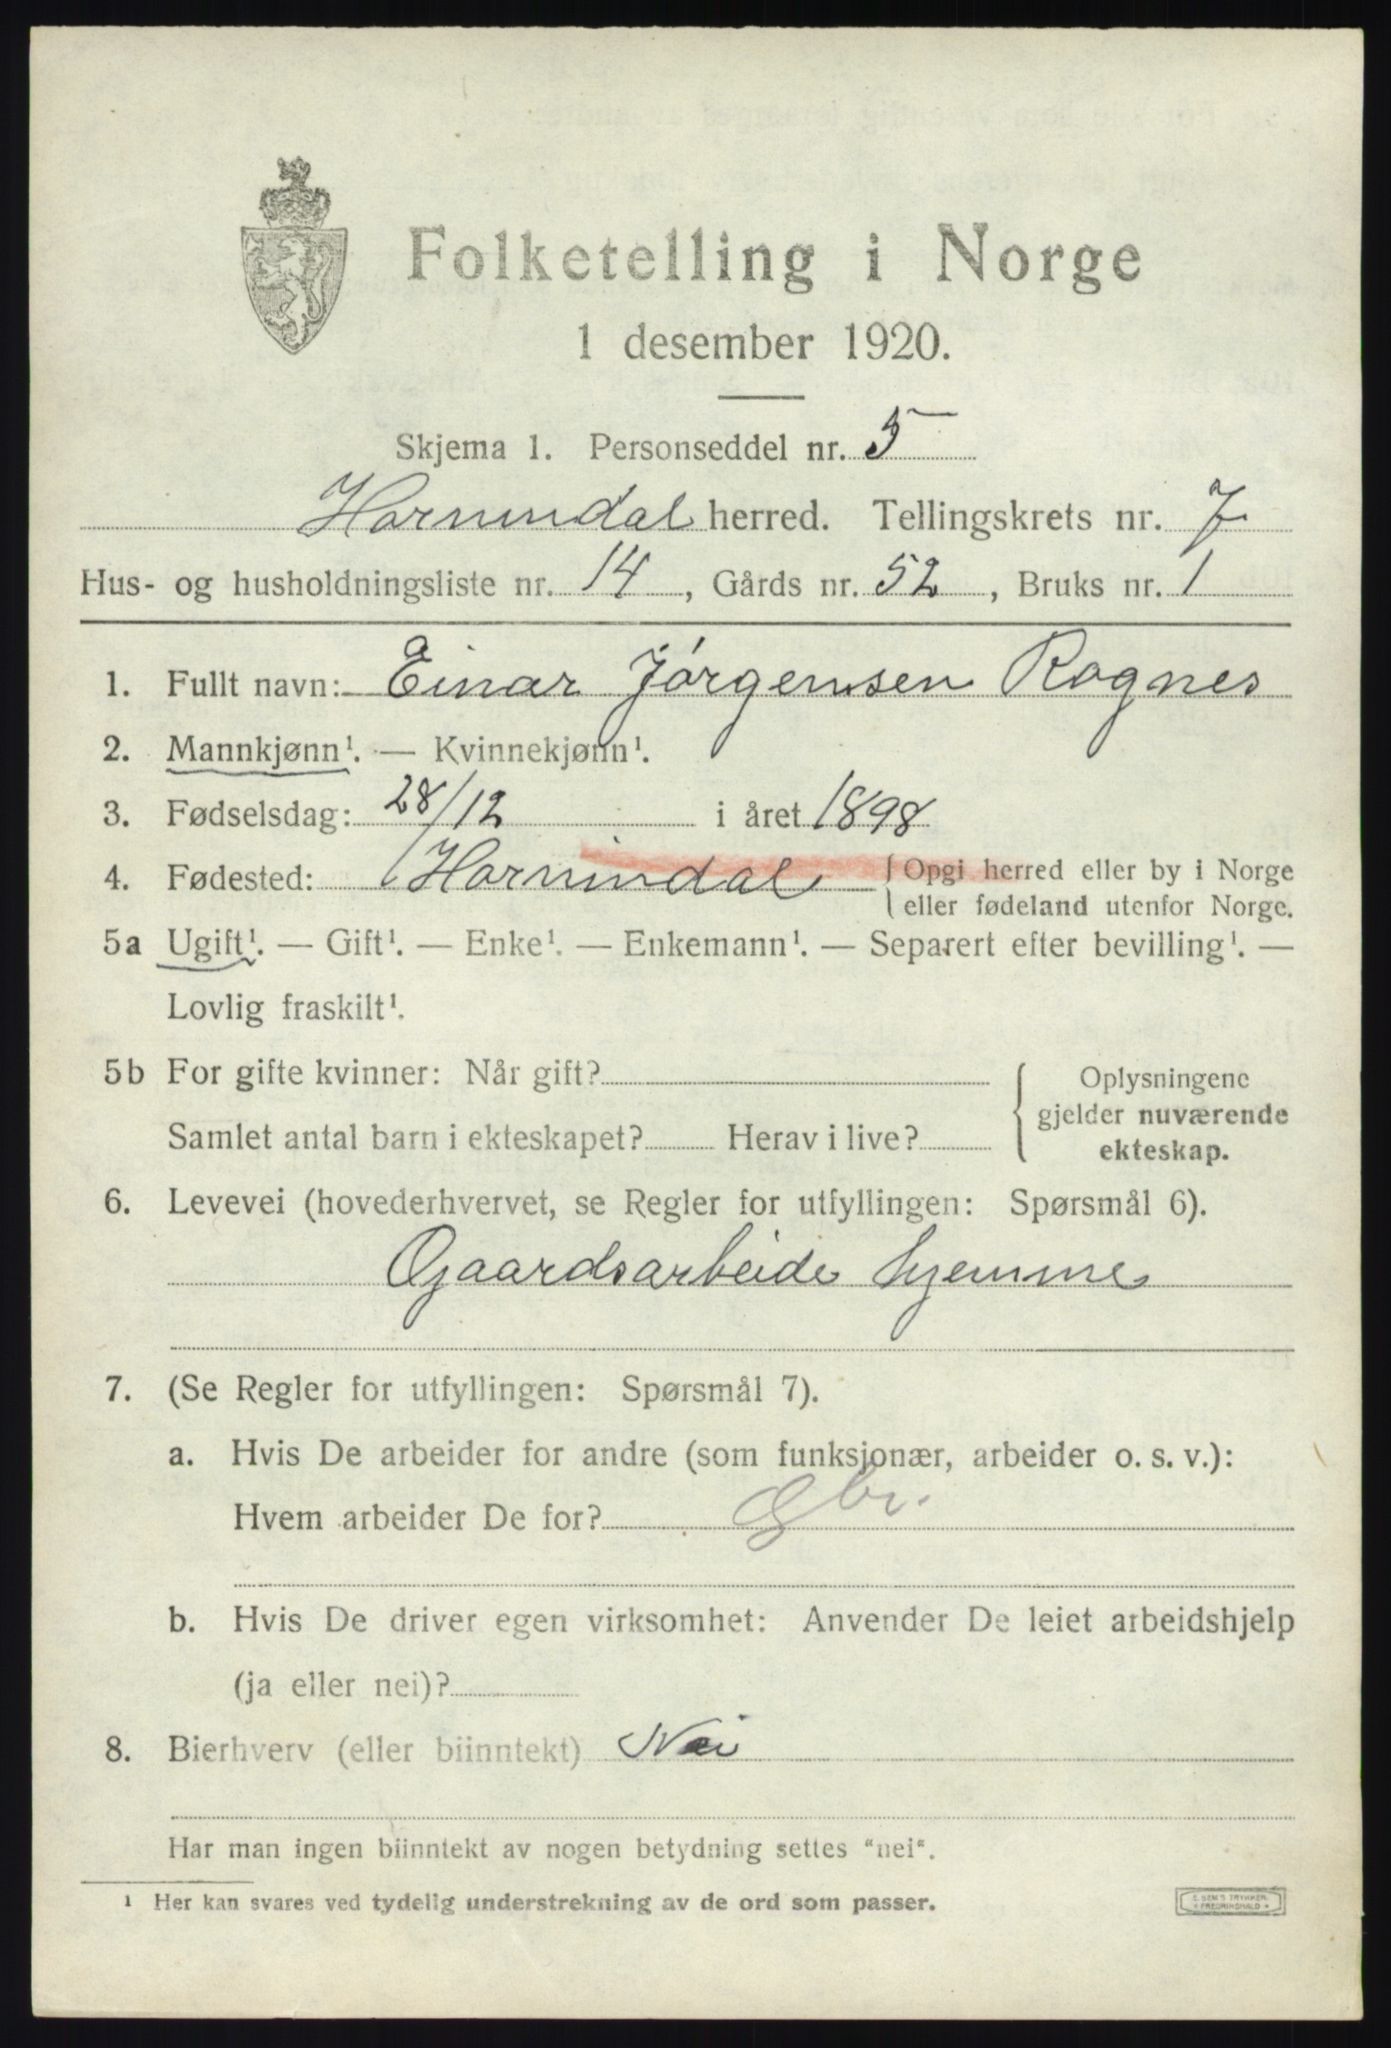 Folketelling i Norge
1 desember 1920.
Skjema 1. Personseddel nr. 5
Hornindal herred. Tellingskrets nr. 7
Hus- og husholdningsliste nr. 14, Gårds nr. 52, Bruks nr. 1
1. Fullt navn: Einar Jørgensen Rognes
2. Mannkjønn¹. — Kvinnekjønn¹.
3. Fødselsdag: 28/12 i året 1898
4. Fødested: Hornindal { Opgi herred eller by i Norge
eller fødeland utenfor Norge.
5a Ugift¹. — Gift¹. — Enke¹. — Enkemann¹. — Separert efter bevilling¹. —
Lovlig fraskilt¹.
5b For gifte kvinner: Når gift?
Samlet antal barn i ekteskapet? Herav i live?
{ Oplysningene
gjelder nuværende
ekteskap.
6. Levevei (hovederhvervet, se Regler for utfyllingen: Spørsmål 6).
Gaardsarbeide hjemme
7. (Se Regler for utfyllingen: Spørsmål 7).
a. Hvis De arbeider for andre (som funksjonær, arbeider o. s. v.):
Hvem arbeider De for? Gbr.
b. Hvis De driver egen virksomhet: Anvender De leiet arbeidshjelp
(ja eller nei)?
8. Bierhverv (eller biinntekt) Nei
Har man ingen biinntekt av nogen betydning settes "nei".
¹ Her kan svares ved tydelig understrekning av de ord som passer.
E. SEM'S TRYKKERI
* FREDRIKSHALD *